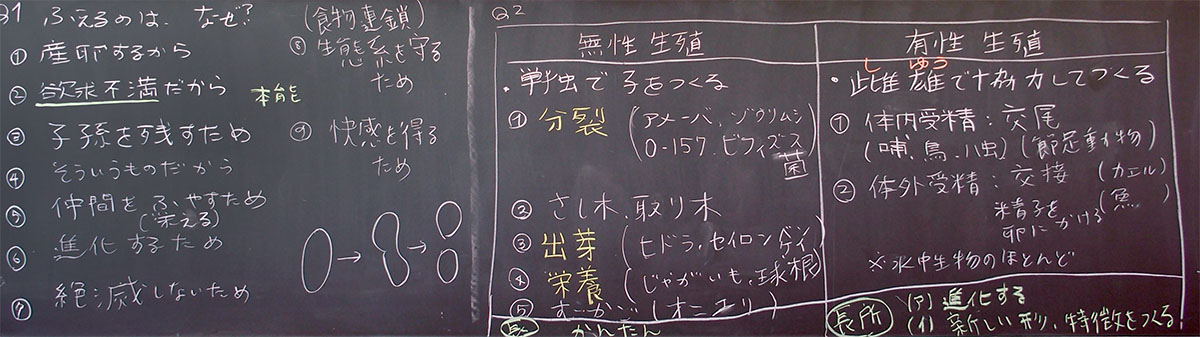 Q1 ふえるのは、なぜ?
① 産卵するから
② 欲求不満だから 本能
③ 子孫を残すため
④ そういうものだから
⑤ 仲間をふやすため
(栄える)
⑥ 進化するため
⑦ 絶滅しないため
(食物連鎖)
⑧ 生態系を守る
ため
⑨ 快感を得る
ため
Q2
無性生殖
・単独で子をつくる
① 分裂 (アメーバ、ゾウリムシ
O-157、ビフィズス
菌)
② さし木、取り木
③ 出芽 (ヒドラ、セイロンベンケイ)
④ 栄養 (じゃがいも、球根)
⑤ (オニユリ)
長所 かんたん
有性生殖
し ゆう
・雌雄で協力してつくる
① 体内受精:交尾
(哺、鳥、ハ虫) (節足動物)
② 体外受精:交接 (カエル)
精子を (魚)
卵にかける
※水中生物のほとんど
長所 (ア) 進化する
(イ) 新しい形、特徴をつくる